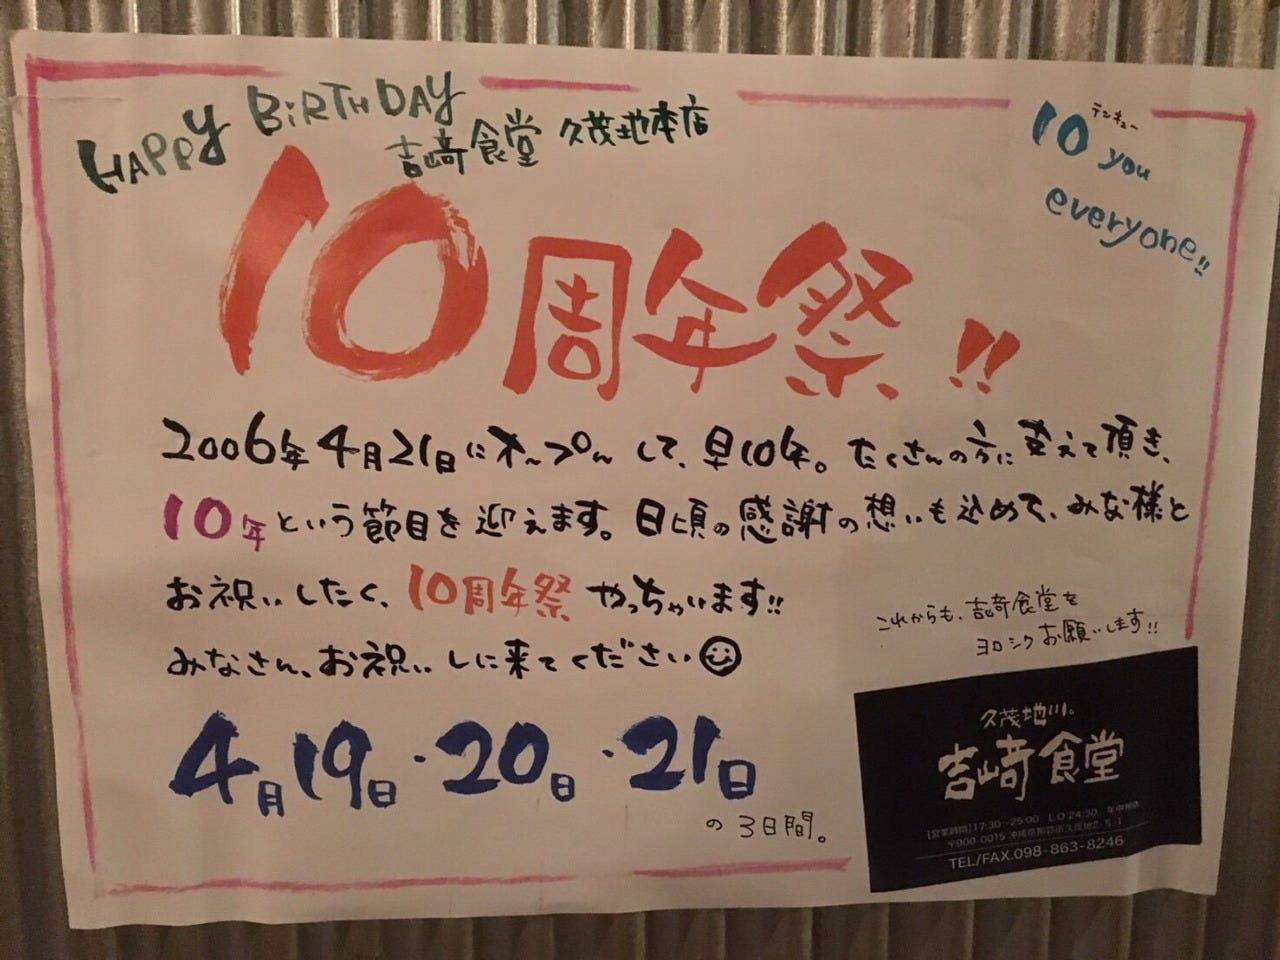 HAPPY BiRTHDAY
吉﨑食堂 久茂地本店
テンキュー
10 you
everyone!!
10周年祭!!
2006年4月21日にオープンして、早10年。たくさんの方に支えて頂き、
10年という節目を迎えます。日頃の感謝の想いも込めて、みな様と
お祝いしたく、10周年祭やっちゃいます!!
みなさん、お祝いしに来てください
4月19日・20日・21日
の3日間。
これからも、吉﨑食堂を
ヨロシクお願いします!!
久茂地川。
吉﨑食堂
[営業時間]17:30~25:00 L.O 24:30 年中無休
〒900-0015 沖縄県那覇市久茂地2-5-1
TEL/FAX.098-863-8246